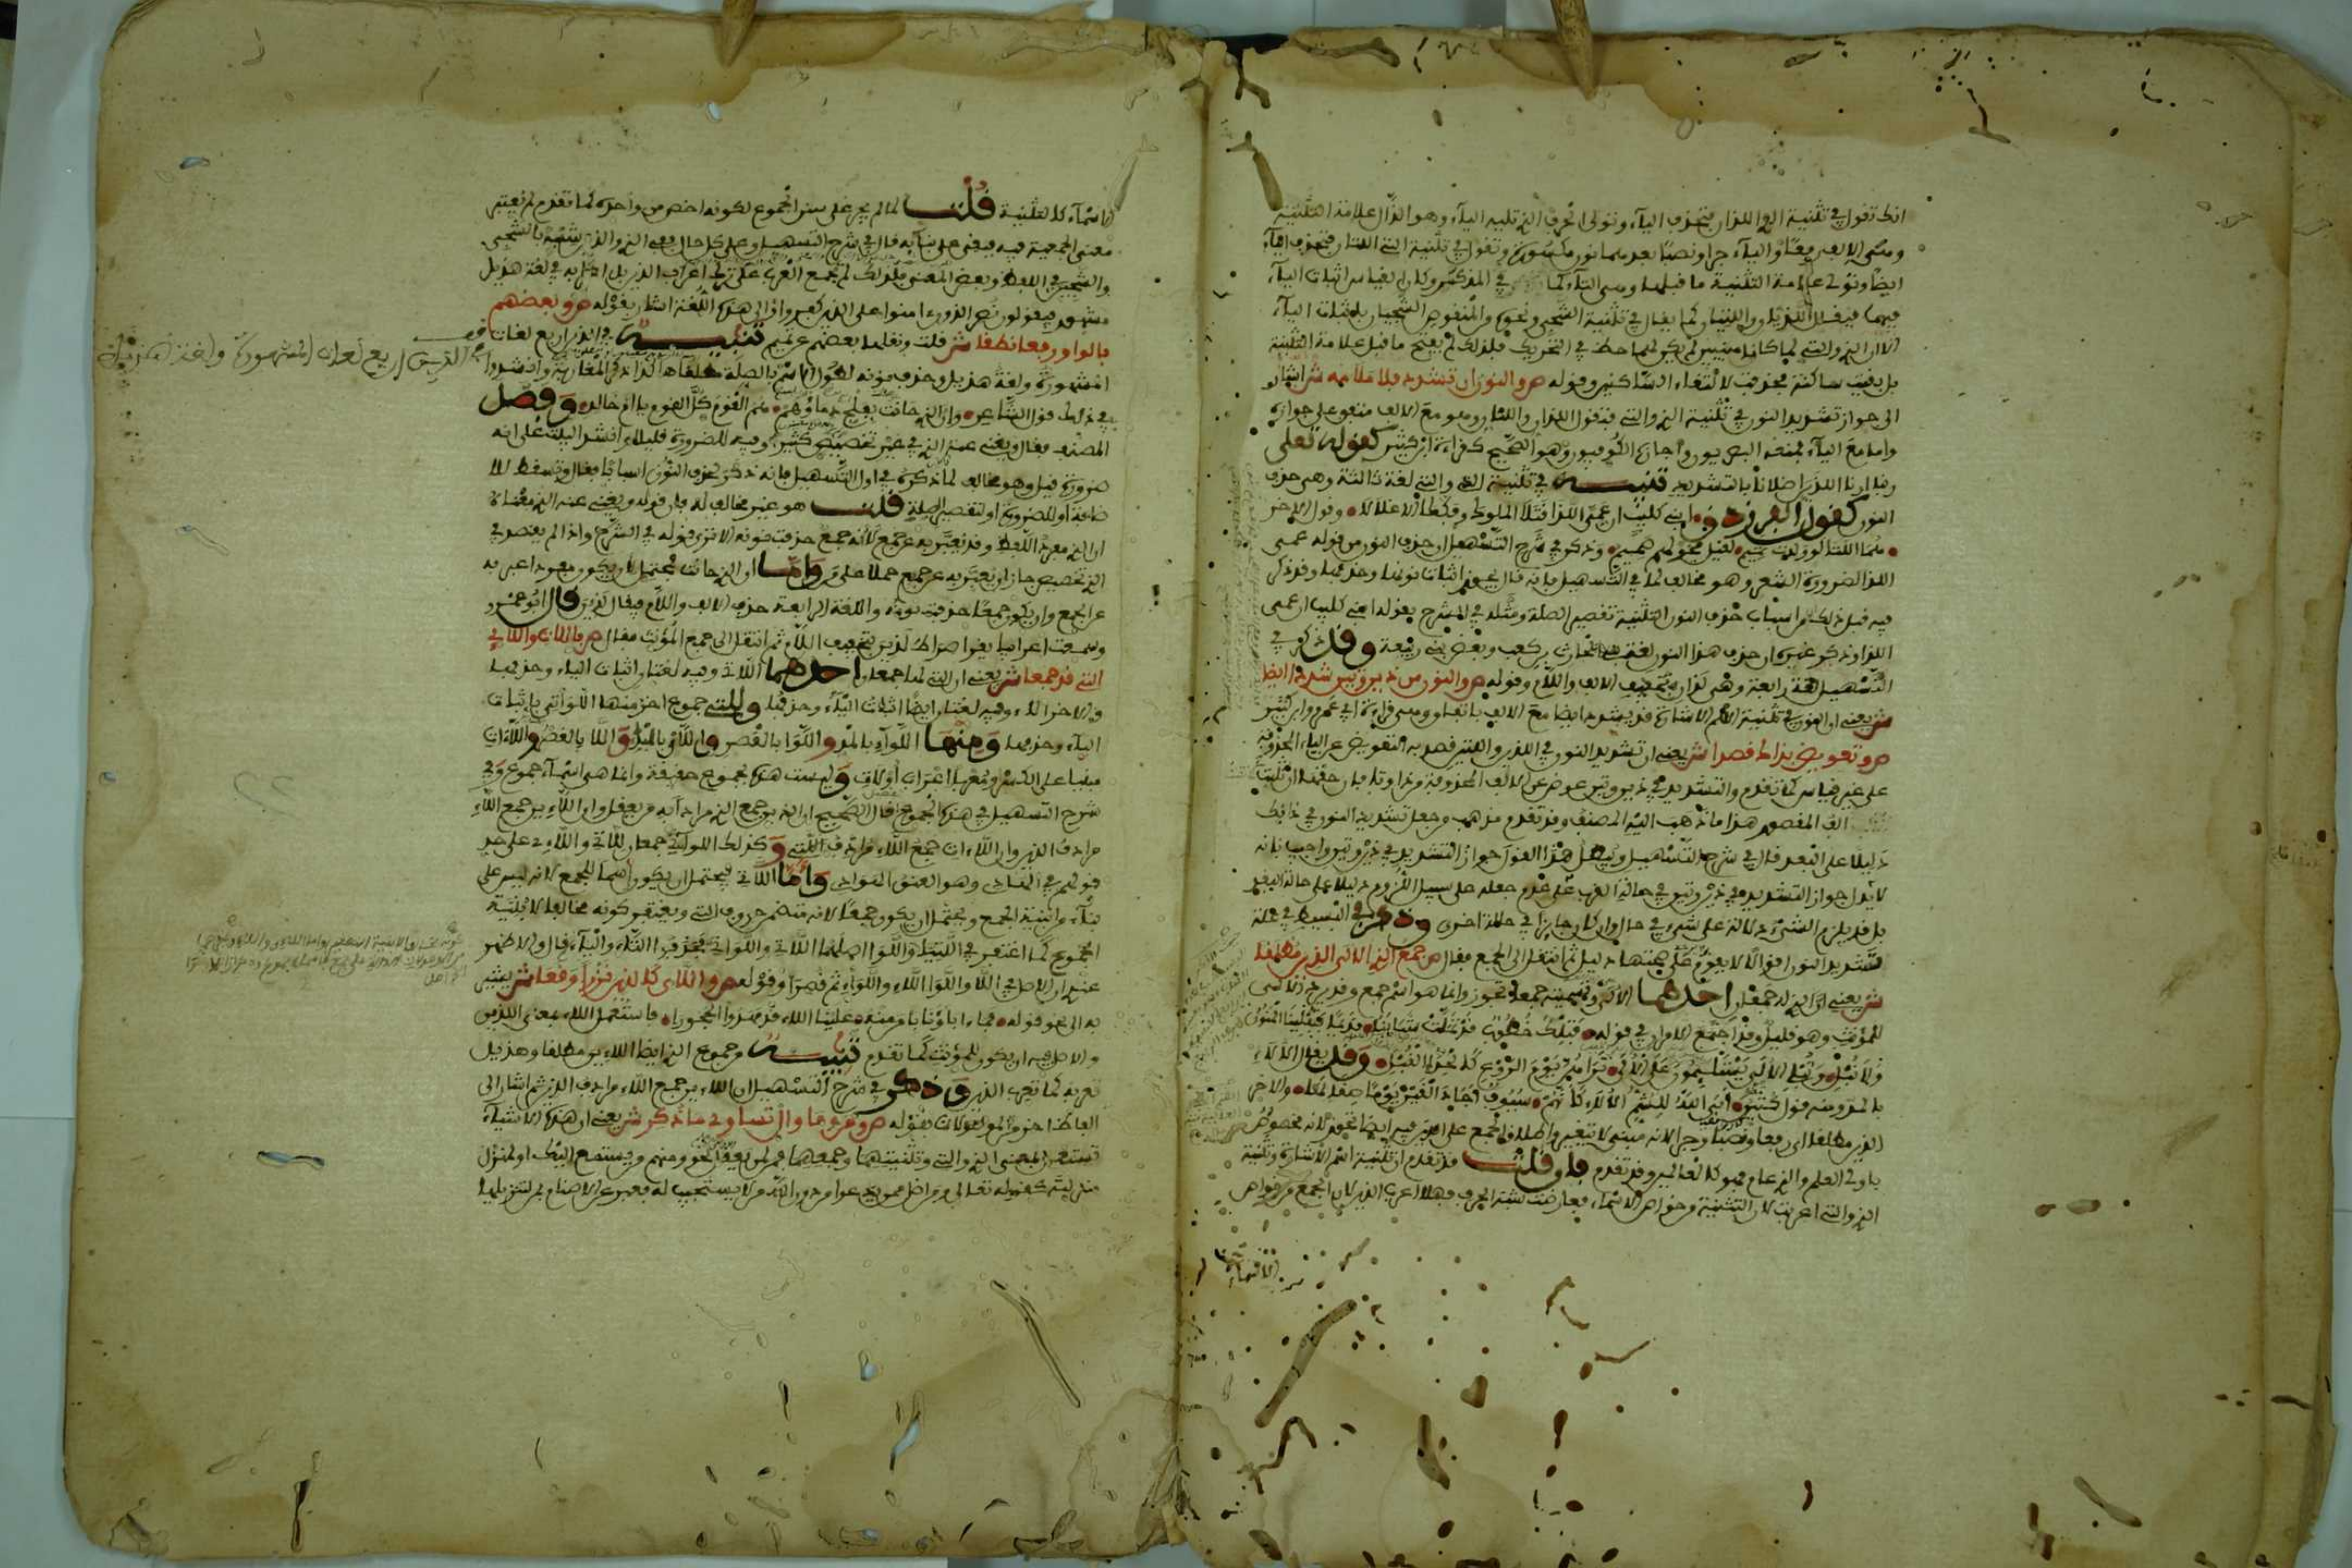 انك تقول في تثنية الذي اللذان بحذف الياء وتولى الحرف الذي تليه الياء وهو الذال علامة التثنية
وهي الالف رفعا والياء جرا ونصبا بعدهما نون مكسورة وتقول في تثنية التي اللتان فتحذف الياء
ايضا وتولى علامة التثنية ما قبلها وهي التاء كما في المذكر وكان القياس اثبات الياء
فيهما فيقال اللذيان واللتيان كما يقال في تثنية الشجي ونحوه من المنقوص الشجيان باثبات الياء
الا ان الذي والتي لما كانا مبنيين لم يكن لهما حظ في التحريك فلذلك لم يفتح ما قبل علامة التثنية
بل بقيت ساكنة فحذفت لالتقاء الساكنين وقوله ص والنون ان تشدد فلا ملامه ش اشار
الى جواز تشديد النون في تثنية الذي والتي فتقول اللذان واللتان وهو مع الالف متفق على جوازه
واما مع الياء فمنعه البصريون واجازه الكوفيون وهو الصحيح كقراءة ابن كثير كقوله تعلى
ربنا ارنا اللذين اضلانا بالتشديد تنبيه في تثنية الذي والتي لغة ثالثة وهي حذف
النون كقول الفرزدق ابني كليب ان عمي اللذا قتلا الملوك وفككا الاغلالا وقول الاخر
هما اللتا لو ولدت تميم لقيل فخر لهم صميم وذكر في شرح التسهيل ان حذف النون من قوله عمي
اللذا لضرورة الشعر وهو مخالف لما في التسهيل فانه قال يجوز اثبات نونها وحذفها وقد ذكر
فيه قبل ذلك من اسباب حذف النون التثنية تقصير الصلة ومثله في الشرح بقوله ابني كليب ان عمي
اللذا وذكر غيره ان حذف هذا النون لغة بني الحارث بن كعب وبعض بني ربيعة وقد ذكر في
التسهيل لغة رابعة وهي لذان بتخفيف الالف واللام وقوله ص والنون من ذين وتين شددا ايضا
ش يعني ان النون في تثنية اسم الاشارة قد يشدد ايضا مع الالف باتفاق ومع الياء وهي قراءة ابي عمرو وابن كثير
ص وتعويض بذاك قصدا ش يعني ان تشديد النون في اللذين واللتين قصد به التعويض عن الياء المحذوفة
على غير قياس كما تقدم والتشديد في ذين وتين عوض عن الالف المحذوفة من ذا وتا فان حقهما ان تثبت
الف المقصور هذا ما ذهب اليه المصنف وقد تقدم مذهب من جعل تشديد النون في ذانك
دليلا على البعد قال في شرح التسهيل ويبطل هذا القول جواز التشديد في ذين وتين واجيب بانه
لا يدل جواز التشديد في ذين وتين في حالة القرب على عدم جعله على سبيل اللزوم دليلا على حالة البعد
بل قد يلزم الشيء دلالة على شيء في حال وان كان جايزا في حالة اخرى وذكر في البسيط في علة
تشديد النون اقوالا لا يقوم على صحتها دليل ثم انتقل الى الجمع فقال ص جمع الذي الالى الذين مطلقا
ش يعني ان الذي له جمعان احدهما الالى وتسميته جمعا تجوز وانما هو اسم جمع وقد يرد الالى
للمؤنث وهو قليل وقد اجتمع الامران في قوله فتلك خطوب قد تملت شبابنا قديما فتبلينا المنون
وما نبلي وتبلي الالى يستلئمون على الالى تراهن يوم الروع كالحدإ القبل وقد يقال الالاء
بالمد ومنه قول كثير ابى الله للشم الالاء كانهم سيوف اجاد القين يوما صقالها والاخر
الذين مطلقا اي رفعا ونصبا وجرا لانه مبني لا يتغير واطلاق الجمع على الذين فيه ايضا تجوز لانه مخصوص
باولى العلم والذي عام فهو كالعالمين وقد تقدم فان قلت قد تقدم ان تثنية اسم الاشارة وتثنية
الذي والتي اعربت لان التثنية من خواص الاسماء فعارضت شبه الحرف فهلا اعرب الذين لان الجمع من خواص
من الاشياء
الاسماء كالتثنية قلت لما لم يجر على سنن الجموع لكونه اخص من واحده كما تقدم لم يعتبر
معنى الجمعية فيه فبقي على بنائه قال في شرح التسهيل وعلى كل حال ففي الذي والذين شبه بالشجي
والشجين في اللفظ وبعض المعنى فلذلك لم تجمع العرب على ترك اعراب الذين بل اعرابه في لغة هذيل
مشهور فيقولون نصر الذون امنوا على الذين كفروا والى هذه اللغة اشار بقوله ص وبعضهم
بالواو رفعا نطقا ش قلت ونقلها بعضهم عن تميم تنبيه في الذين اربع لغات
المشهورة ولغة هذيل وحذف نونه لطول الاسم بالصلة مطلقا هكذا ذكر المغاربة وانشدوا
في ذلك قول الشاعر وان الذي حانت بفلج دماؤهم هم القوم كل القوم يا ام خالد وفصل
المصنف فقال ويغني عنه الذي في غير تخصيص كثيرا وفيه للضرورة قليلا وانشد البيت على انه
ضرورة قيل وهو مخالف لما ذكره في اول التسهيل فانه ذكر لحذف النون اسبابا فقال وتسقط للا
ضافة او للضرورة او لتقصير الصلة قلت هو غير مخالف له فان قوله ويغني عنه الذي معناه
ان الذي مفرد اللفظ وقد يعبر به عن جمع لا انه جمع حذفت نونه الا ترى قوله في الشرح واذا لم يقصد في
الذي تخصيص جاز ان يعبر به عن جمع حملا على من واما وان الذي حانت فيحتمل ان يكون مفردا عبر به
عن الجمع وان يكون جمعا حذفت نونه واللغة الرابعة حذف الالف واللام فيقال لذين قال ابو عمرو
وسمعت اعرابيا يقرا صراط لذين بتخفيف اللام ثم انتقل الى جمع المؤنث فقال ص باللات واللاء
التي قد جمعا ش يعني ان التي لها جمعان احدهما اللاتي وفيه لغتان اثبات الياء وحذفها
والاخر اللاء وفيه لغتان ايضا اثبات الياء وحذفها وللتي جموع اخر منها اللواتي باثبات
الياء وحذفها ومنها اللواء بالمد واللوا بالقصر واللاء بالمد واللا بالقصر واللاءات
مبنيا على الكسر ومعربا اعراب اولات وليست هذه بجموع حقيقة وانما هي اسماء جموع وفي
شرح التسهيل في هذه الجموع قال الصحيح ان الذين جمع الذي مرادا به من يعقل وان اللاءين جمع اللاء
مرادف الذين وان اللاءات جمع اللاء مرادف اللتي وكذلك اللواتي جمعان للاتي واللاء على حد
قولهم في الهادي وهو العنق الهوادي واما اللاتي فيحتمل ان يكون اسما للجمع لانه ليس على
بناء من ابنية الجمع ويحتمل ان يكون جمعا لانه متضمن حروف التي ويغتفر كونه مخالفا لابنية
الجموع كما اغتفر في اللتيا واللوا اصلهما اللاتي واللواتي فحذفوا التاء والياء قال والاظهر
عندي ان الاصل في اللا واللوا اللاء واللواء ثم قصرا وقوله ص واللاء كالذين نزرا وقعا ش يشير
به الى نحو قوله فما اباؤنا بامن منه علينا اللاء قد مهدوا الحجورا فاستعمل اللاء بمعنى الذين
والاصل فيه ان يكون للمؤنث كما تقدم تنبيه وجموع الذي ايضا اللاءين مطلقا وهذيل
تعربه كما تعرب الذين وذكر في شرح التسهيل ان اللاءين جمع اللاء مرادف الذين ثم اشار الى
الفاظ اخر من الموصولات بقوله ص ومن وما وال تساوي ما ذكر ش يعني ان هذه الاشياء
تستعمل بمعنى الذي والتي وتثنيتهما وجمعهما فمن لمن يعقل نحو ومنهم من يستمع اليك او لمنزل
منزلته كقوله تعالى ومن اضل ممن يدعوا من دون الله من لا يستجيب له فعبر عن الاصنام بمن لتنزيلها
في الذين اربع لغات المشهورة ولغة هذيل